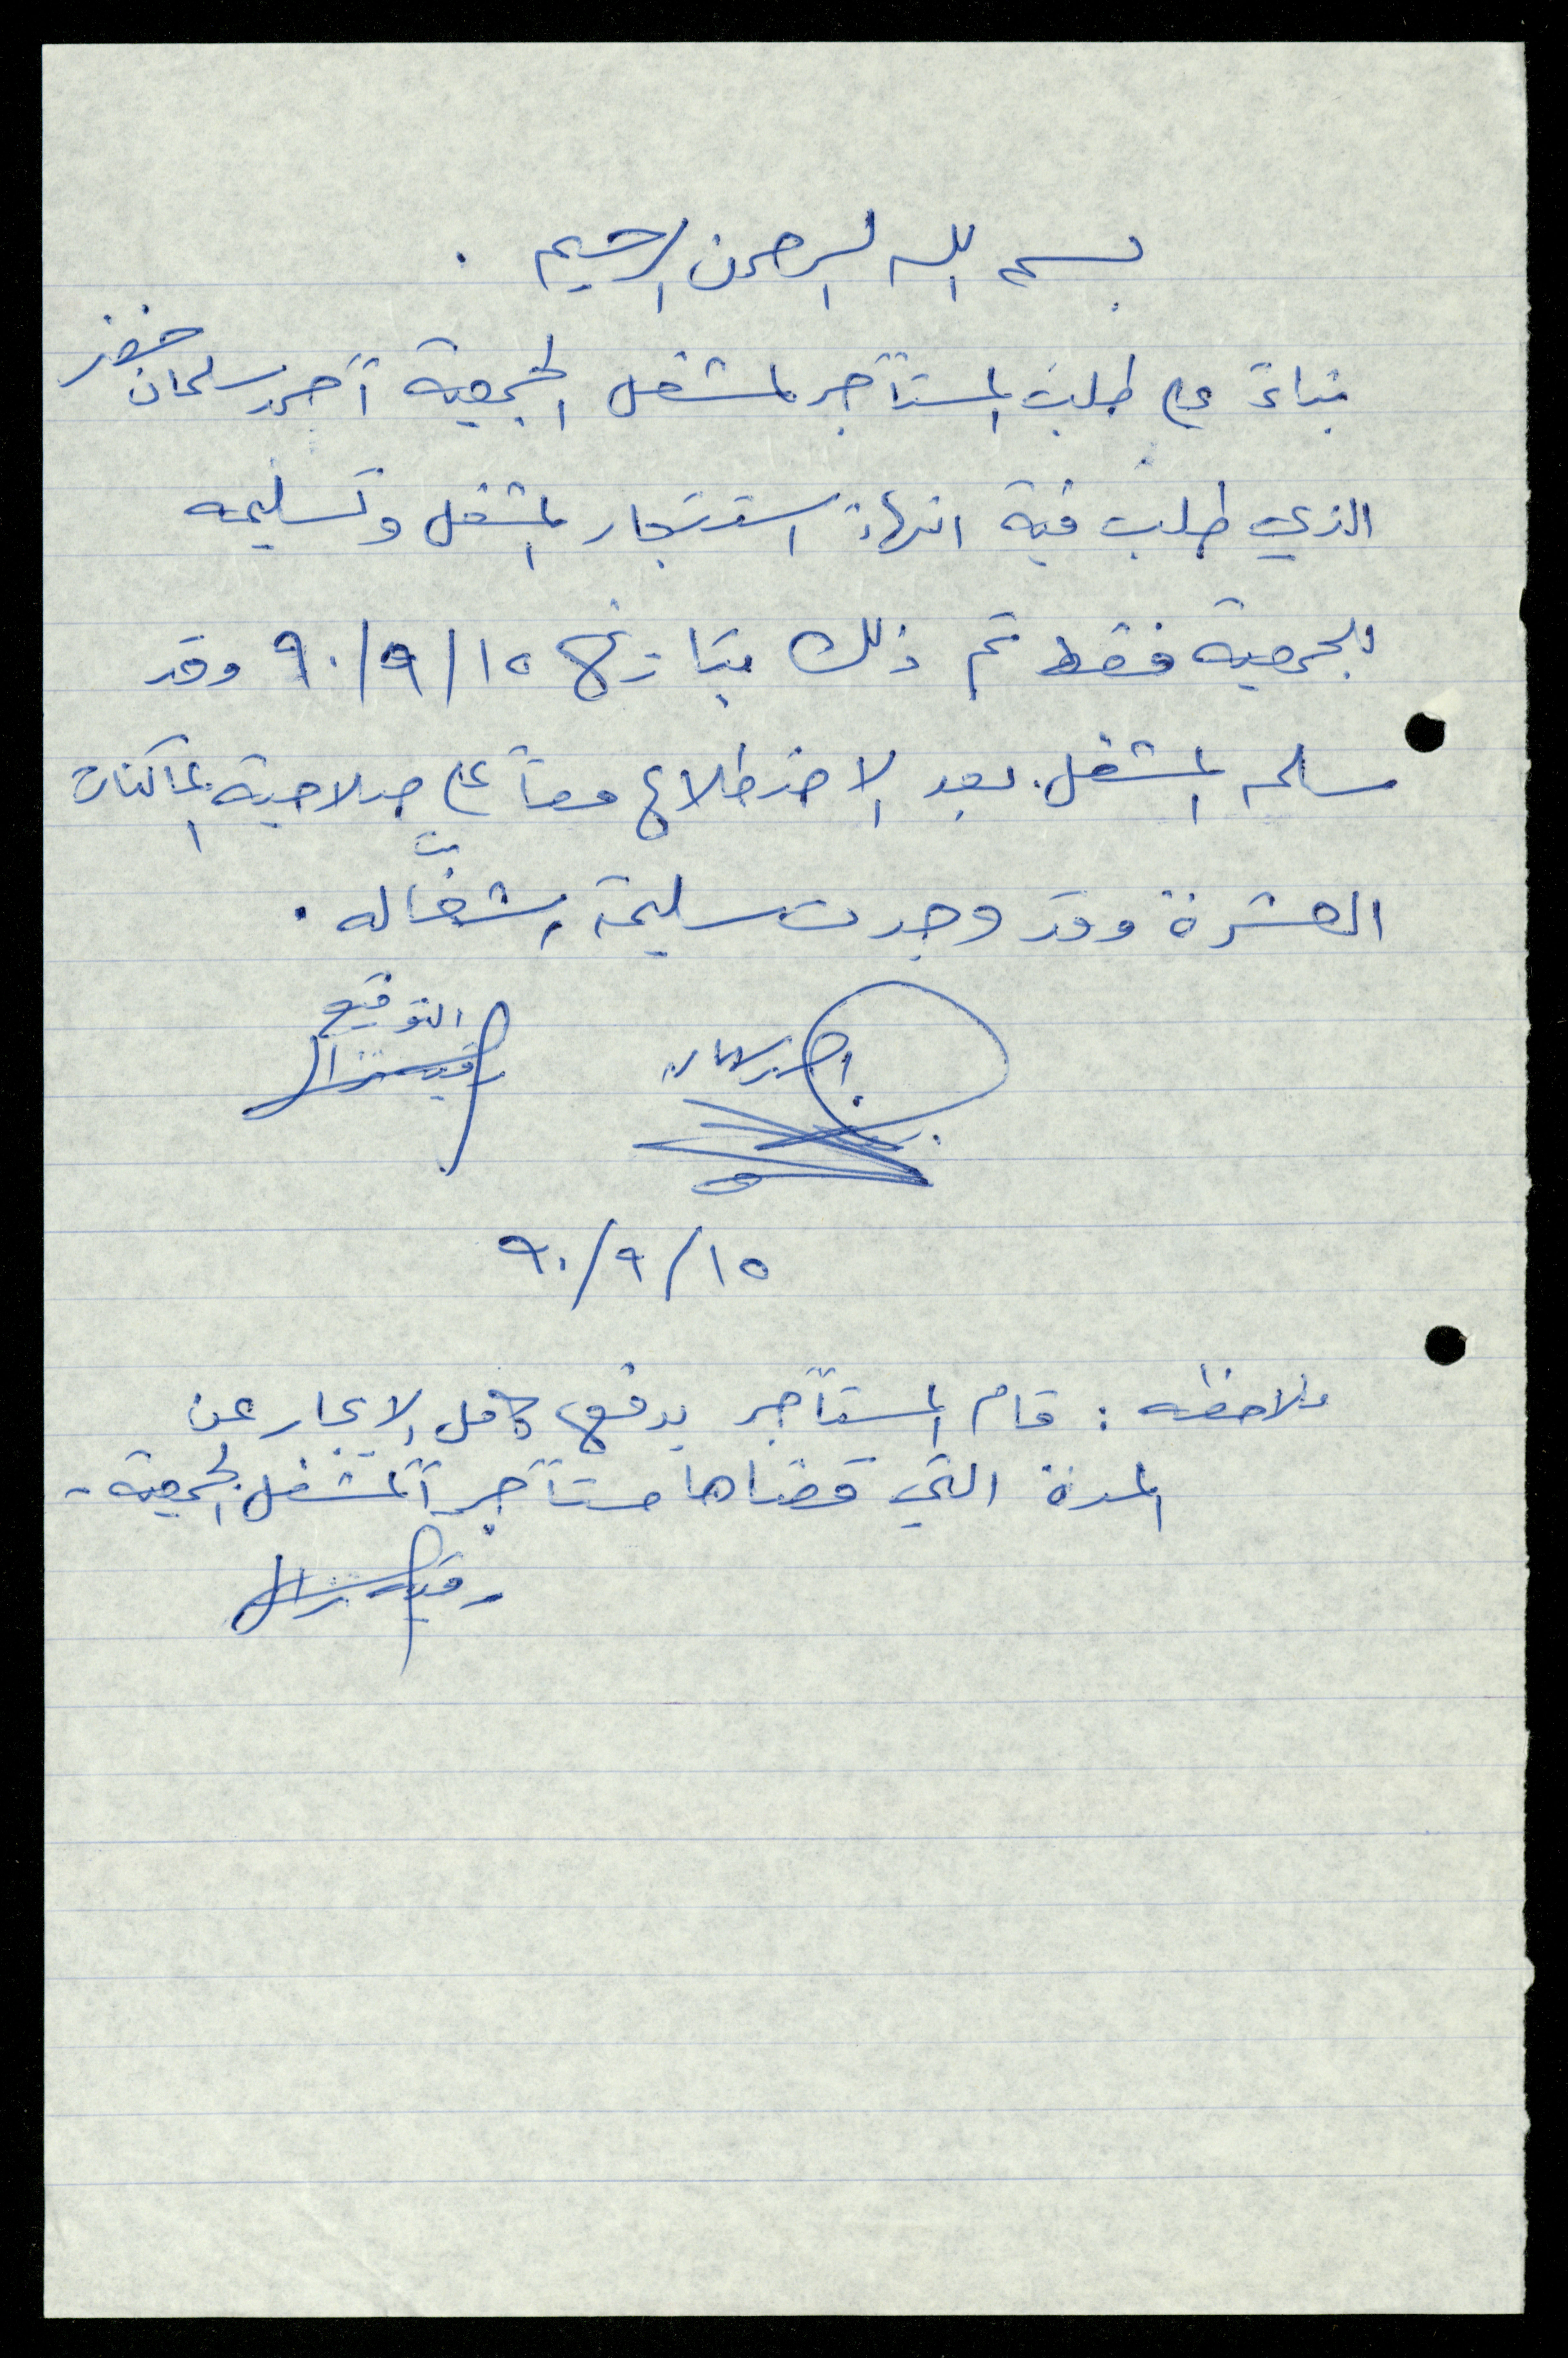 بسم الله الرحمن الرحيم .
بناءً على طلب المستأجر لمشغل الجمعية أحمد سلمان خضر
الذي طلب فية انهاء استئجار المشغل وتسليمه
للجمعية فقط تم ذلك بتاريخ ١٥/٩/٩٠ وقد
سلمه المشغل بعد الاضطلاع معاً على صلاحية الماكنات
العشرة وقد وجدت سليمة وشغّاله .
التوقيع
احمد سلمان
١٥/٩/٩٠
ملاحظه : قام المستأجر بدفع كامل الايجار عن
المدة التي قضاها مستأجراً لمشغل الجمعية -